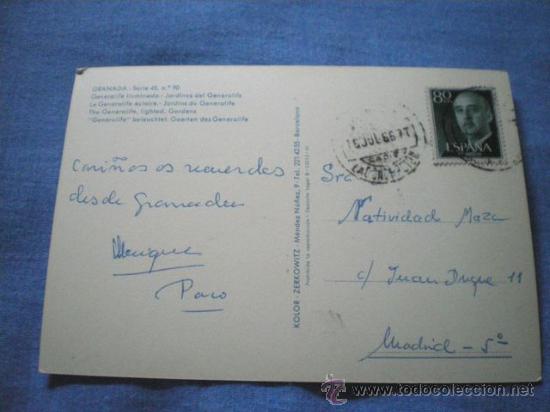 GRANADA - Serie 45, n.º 90
Generalife iluminado.- Jardines del Generalife
Le Generalife éclairé.- Jardins du Generalife
The Generalife, lighted. Gardens
"Generalife" beleuchtet. Gaerten des Generalife
Cariñosos recuerdos
desde Granada
Paco
KOLOR - ZERKOWITZ - Méndez Núñez, 9 - Tel. 221 4255 - Barcelona
Prohibida la reproducción
80
ESPAÑA
Sra
Natividad Maza
c/ Juan Duque 11
Madrid - 5º
todocoleccion
www.todocoleccion.net